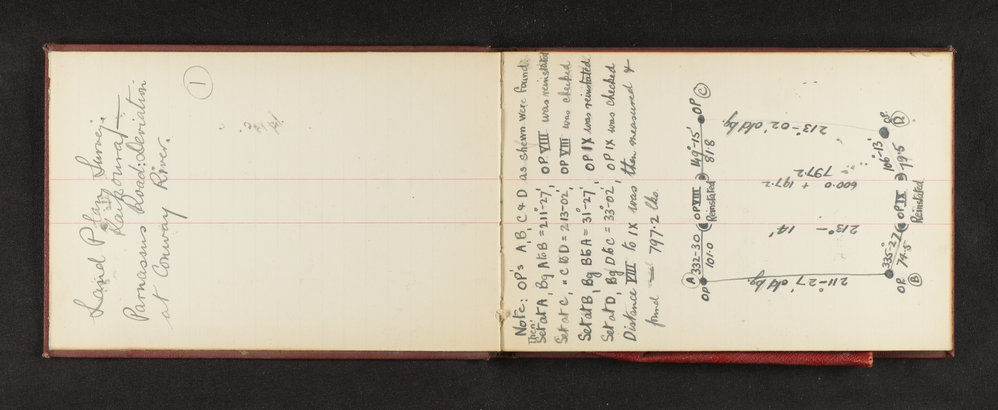 Land Plan Survey.
Kaikoura –
Parnassus Road: deviation
at Conway River.
1
Note: OP's A, B, C & D as shewn were found.
Then:
Set at A, Bg A to B = 211°-27', OP VIII was reinstated
Set at C, " C to D = 213°-02', OP VIII was checked
Set at B, Bg B to A = 31°-27', OP IX was reinstated
Set at D, Bg D to C = 33°-02', OP IX was checked
Distance VIII to IX was then measured &
found 797.2 lks.
A
OP
332-30
101.0
OP VIII
Reinstated
149°-15'
81.8
OP
C
211°-27' old bg.
213° – 14'
600.0 + 197.2
797.2
213°-02' old bg.
OP
B
335°-27
74.5
OP IX
Reinstated
106°-13
79.5
OP
D